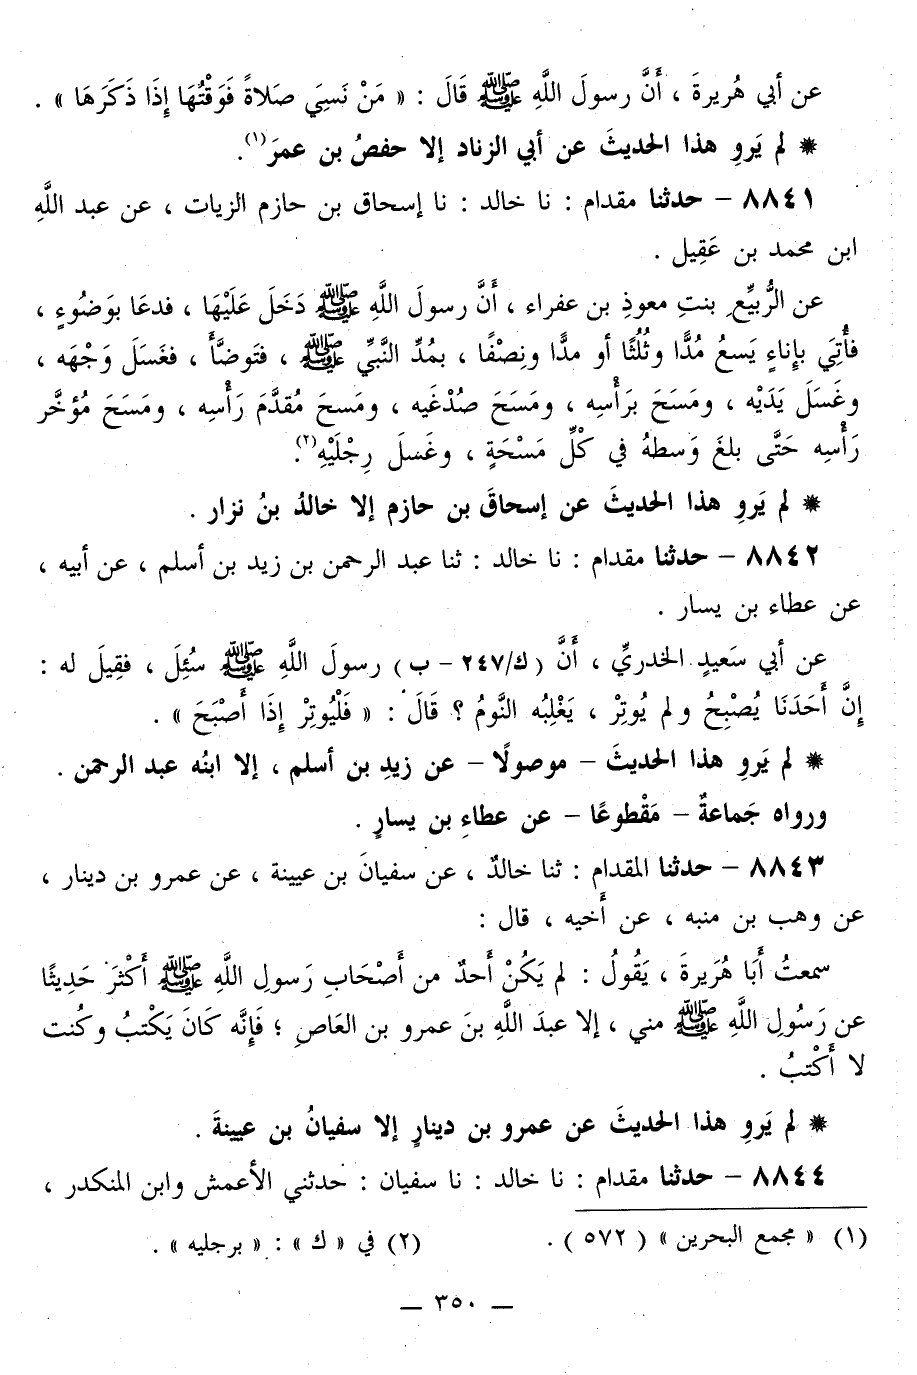 عن أبي هُريرةَ ، أَنَّ رسولَ اللَّهِ ﷺ قَالَ : « مَنْ نَسِيَ صَلاةً فَوَقْتُهَا إِذَا ذَكَرَهَا » .
* لم يَروِ هذا الحديثَ عن أبي الزناد إلا حفصُ بن عمرَ(١).
٨٨٤١ – حدثنا مقدام : نا خالد : نا إسحاق بن حازم الزيات ، عن عبد اللَّهِ
ابن محمد بن عَقِيل .
عن الرُّبيِّعِ بنتِ معوذِ بن عفراء ، أَنَّ رسولَ اللَّهِ ﷺ دَخَلَ عَلَيْهَا ، فدعَا بوَضُوءٍ ،
فأُتِيَ بإِناءٍ يَسعُ مُدًّا وثُلُثًا أو مدًّا ونِصْفًا ، بمُدِّ النَّبيِّ ﷺ ، فتَوضَّأَ ، فغَسَلَ وَجْهَه ،
وغَسَلَ يَدَيْه ، ومَسَحَ برَأْسِه ، ومَسَحَ صُدْغَيه ، ومَسحَ مُقدَّمَ رَأْسِه ، ومَسَحَ مُؤخَّر
رَأْسِه حَتَّى بلغَ وَسطهُ في كُلِّ مَسْحَةٍ ، وغَسلَ رِجْلَيْهِ(٢).
* لم يَروِ هذا الحديثَ عن إسحاقَ بن حازم إلا خالدُ بنُ نزار .
٨٨٤٢ – حدثنا مقدام : نا خالد : ثنا عبد الرحمن بن زيد بن أسلم ، عن أبيه ،
عن عطاء بن يسار .
عن أبي سَعيدٍ الخدريِّ ، أَنَّ ( ك/٢٤٧ – ب ) رسولَ اللَّهِ ﷺ سُئِلَ ، فقِيلَ له :
إِنَّ أَحَدَنَا يُصْبِحُ ولم يُوتِرْ ، يَغْلِبُه النَّومُ ؟ قَالَ : « فَلْيُوتِرْ إِذَا أَصْبَحَ » .
* لم يَروِ هذا الحديثَ – موصولًا – عن زيدِ بن أسلم ، إلا ابنُه عبد الرحمن .
ورواه جَماعةٌ – مَقْطوعًا – عن عطاءِ بن يسارٍ .
٨٨٤٣ – حدثنا المقدام : ثنا خالدٌ ، عن سفيانَ بن عيينة ، عن عمرو بن دينار ،
عن وهب بن منبه ، عن أَخيه ، قال :
سمعتُ أَبَا هُرَيرةَ ، يَقُولُ : لم يَكُنْ أَحدٌ من أَصْحَابِ رَسولِ اللَّهِ ﷺ أَكْثرَ حَدِيثًا
عن رَسُولِ اللَّهِ ﷺ مني ، إلا عبدَ اللَّهِ بنَ عمرو بن العَاصِ ؛ فَإِنَّه كَانَ يَكْتبُ وكُنت
لا أَكْتبُ .
* لم يَروِ هذا الحديثَ عن عمرو بن دينارٍ إلا سفيانُ بن عيينةَ .
٨٨٤٤ – حدثنا مقدام : نا خالد : نا سفيان : حدثني الأعمش وابن المنكدر ،
(١) « مجمع البحرين » ( ٥٧٢ ) . (٢) في « ك » : « برجليه » .
— ٣٥٠ —